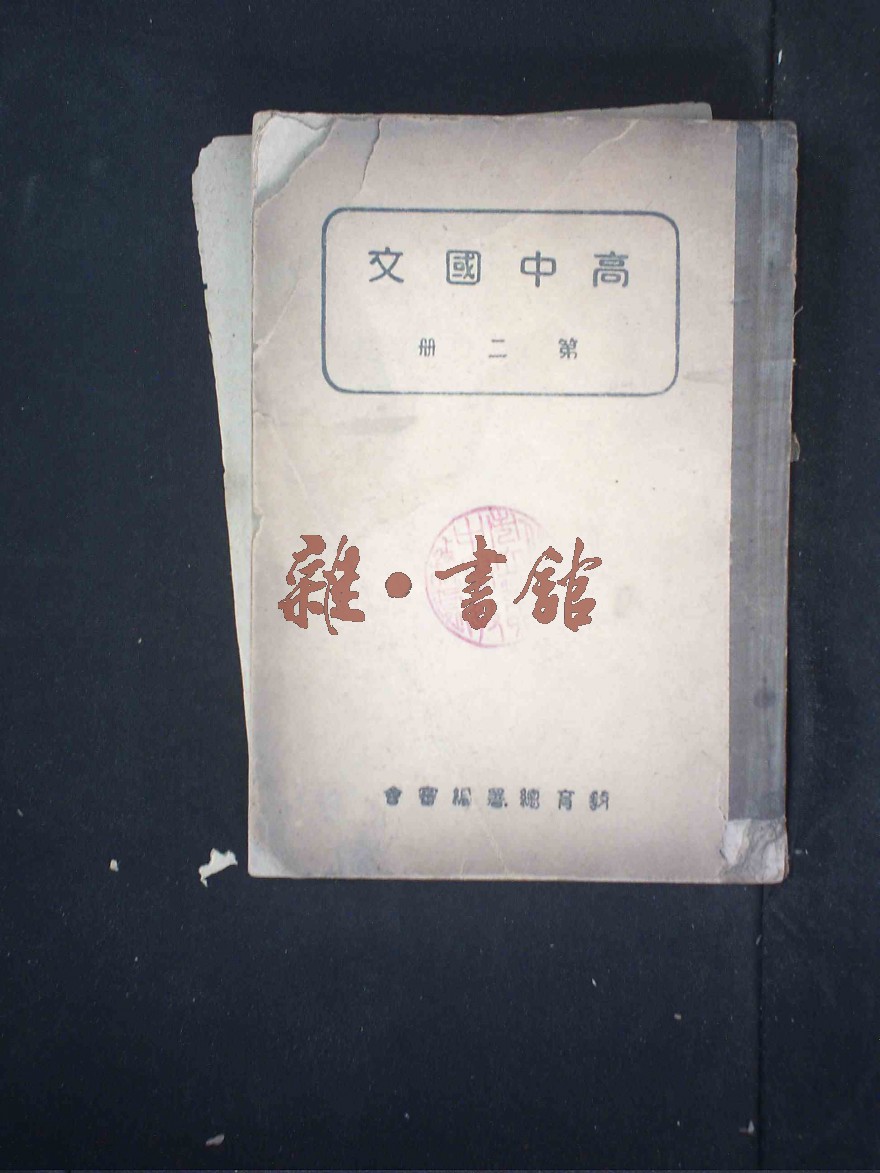 高中國文
第二册
雜·書館
教育總署編審會